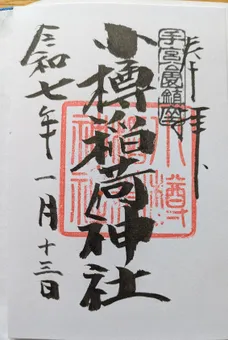 奉拝
手宮公園鎮座
小樽稲荷神社
令和七年一月十三日